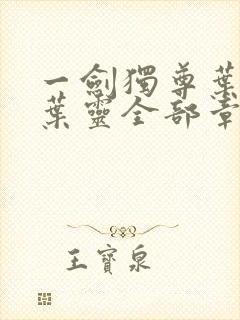 一劍獨尊葉
葉靈全部章
王寶泉